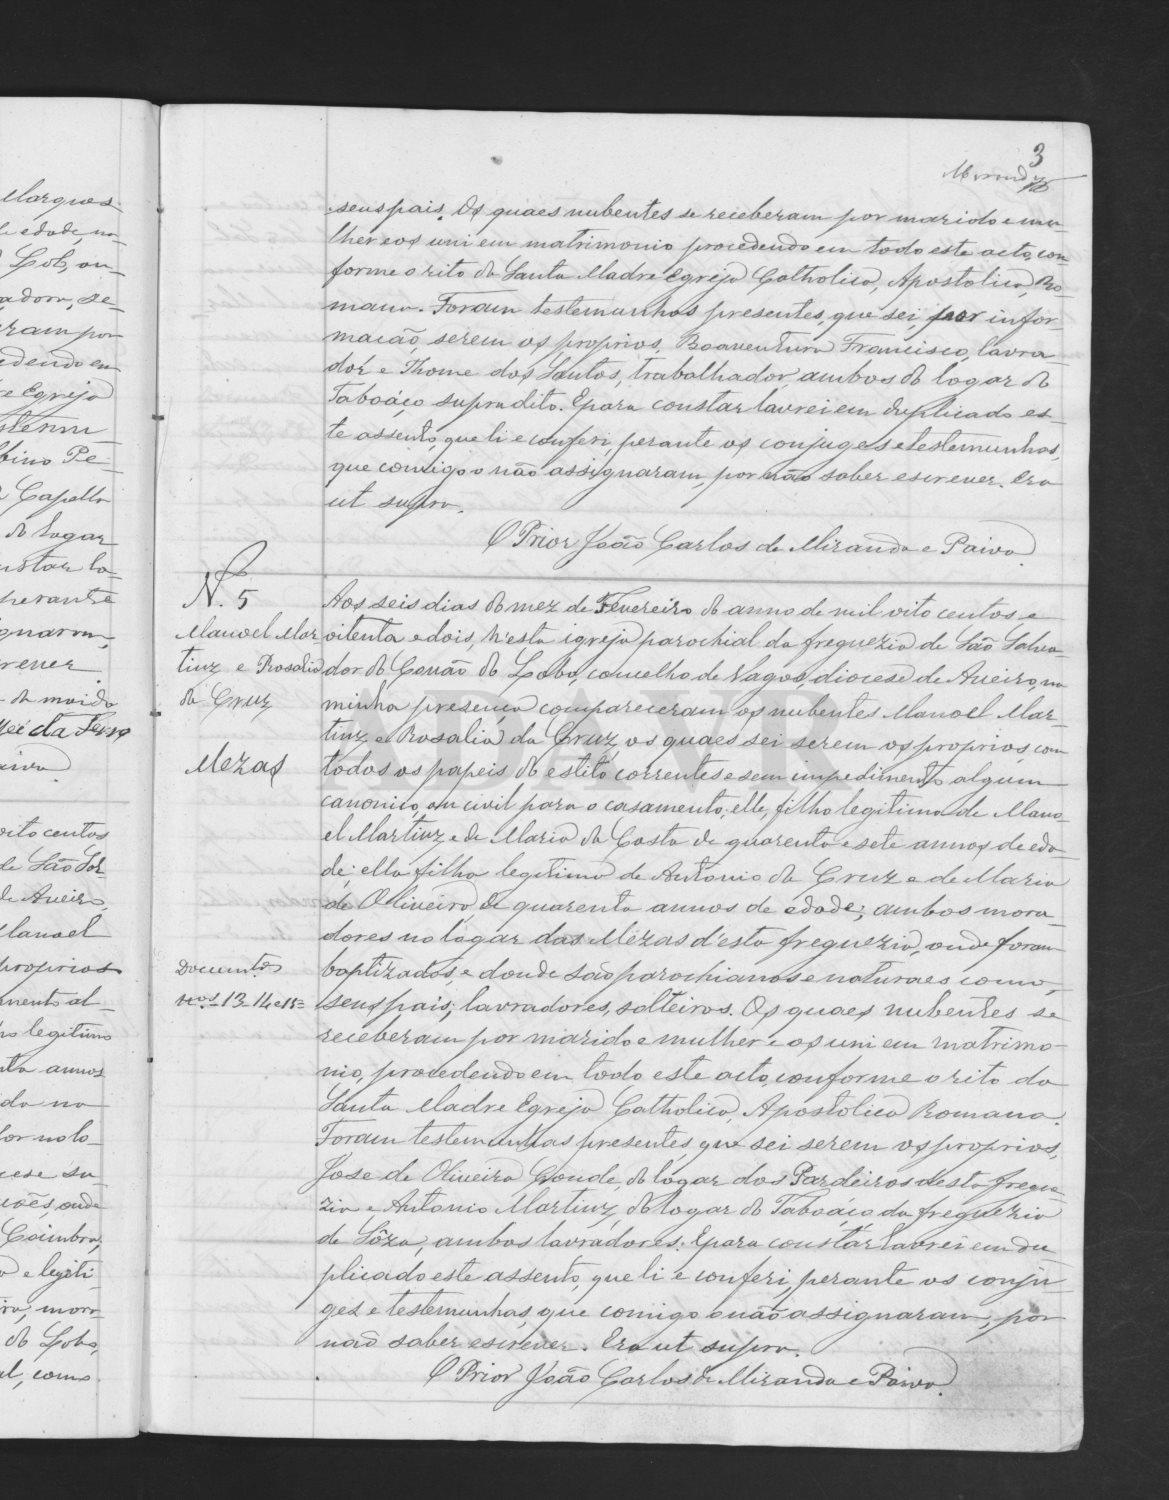 Marques
d'edade, na-
Lob, on-
adora, se-
ram por
cedendo em
e Egreja
bino Pe-
Capella
do logar
nstar la-
perante
gnaram,
rever.
da Terra
aiva
oito centos
de São Sal-
de Aveiro,
Manoel
proprios
mento al-
ho legitimo
nta annos
da na
dor no lo-
cese su-
onde
Coimbra,
e legiti-
mora-
do Lobo,
al, como
3
Mirand
seus pais. Os quaes nubentes se receberam por marido e mu-
lher e os uni em matrimonio procedendo em todo este acto, con
forme o rito da Santa Madre Egreja Catholica, Apostolica, Ro-
mana. Foram testemunhas presentes, que sei, por infor-
mação, serem os proprios, Boaventura Francisco, lavra
dôr e Thome dos Santos, trabalhador, ambos do logar do
Taboáço supradito. E para constar lavrei em duplicado es-
te assento, que li e conferi, perante os conjuges e testemunhas,
que comigo o não assignaram, por não saber escrever. Era
ut supra.
O Prior João Carlos de Miranda e Paiva
N. 5
Manoel Mar
tinz e Rosalia
da Cruz
Mezas
Documtos
nos 13-14 e 15=
Aos seis dias do mez de Fevereiro do anno de mil oito centos e
oitenta e dois, n'esta igreja parochial da freguezia de São Salva-
dor do Covão do Lobo, concelho de Vagos, diocese de Aveiro, na
minha presença compareceram os nubentes Manoel Mar-
tinz e Rosalia da Cruz, os quaes sei serem os proprios, com
todos os papeis do estilo correntes e sem impedimento algum
canonico, ou civil para o casamento; elle, filho legitimo de Mano-
el Martinz e de Maria da Costa de quarenta e sete annos de eda-
de; ella filha legitima de Antonio da Cruz e de Maria
de Oliveira, de quarenta annos de edade; ambos mora
dores no logar das Mezas d'esta freguezia, onde foram
baptizados, e donde são parochianos e naturaes como,
seus pais; lavradores, solteiros. Os quaes nubentes se
receberam por marido e mulher e os uni em matrimo-
nio, procedendo em todo este acto, conforme o rito da
Santa Madre Egreja Catholica, Apostolica Romana.
Foram testemunhas presentes, que sei serem os proprios,
Jose de Oliveira Conde, do logar dos Pardeiros desta fregue-
zia e Antonio Martinz, do logar do Taboáço da freguezia
de Sôza, ambos lavradores. E para constar lavrei em du
plicado este assento, que li e conferi, perante os conju-
ges e testemunhas, que comigo o não assignaram, por
não saber escrever. Era ut supra.
O Prior João Carlos de Miranda e Paiva.